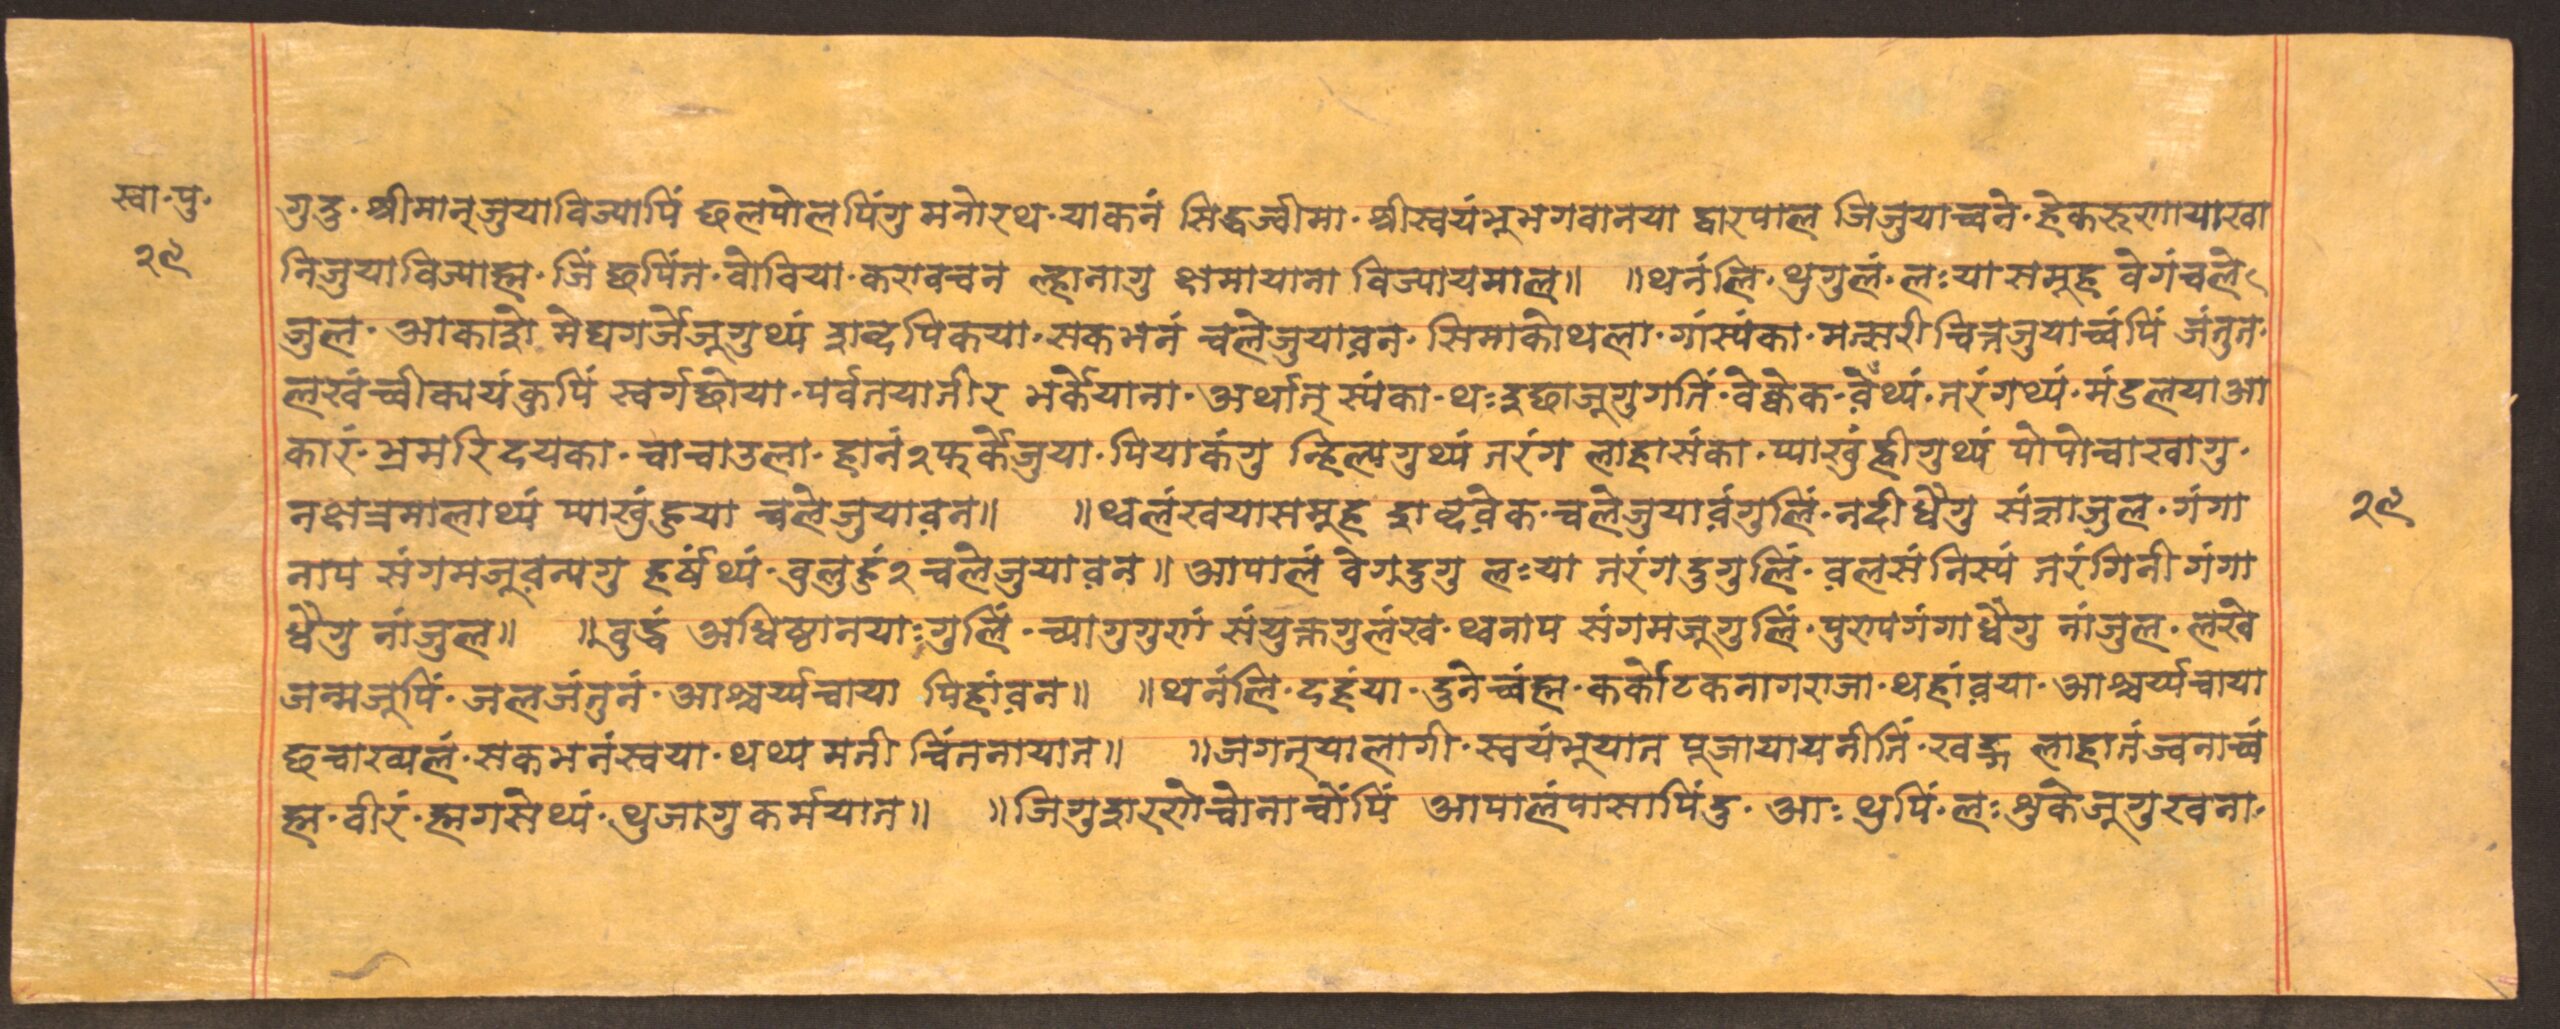 स्वा.पु.
२९
गुडु. श्रीमान्जुयाविज्यापिं छलपोलपिंगु मनोरथ. याकनं सिद्धज्वीमा. श्रीस्वयंभूभगवानया द्वारपाल जिजुयाच्वने. हेकरुणायाखा
निजुयाविज्याह्म. जिं छपिंत. वोविया. करावचन ल्हानागु क्षमायाना विज्यायमाल॥ ॥थनंलि. थुगुलं. लःया समूह वेगंचले
जुल. आकाशे मेघगर्जेजूगुथ्यं शब्दपिकया. सकभनं चलेजुयावन. सिमाकोथला. गांस्यंका. मत्सरीचित्तजुयाच्वंपिं जंतुत.
लखंच्वीकायंकुपिं स्वर्गछोया. पर्वतयातीर भर्केयाना. अर्थात् स्यंका. थःइछाजूगुगतिं. वेक्वेक. वेंथ्यं. तरंगथ्यं. मंडलयाआ
कारं. भ्रमरिदयका. चाचाउला. हानं२फर्केजुया. पियाकंगु न्हिल्यगुथ्यं तरंग लाहासंका. प्याखुंह्वीगुथ्यं पोपोच्वारवागु.
नक्षत्रमालाथ्यं प्याखुंहुया चलेजुयावन॥ ॥थ्वलंखयासमूह शब्दवेक. चलेजुयावंगुलिं. नदीधैगु संज्ञाजुल. गंगा
नाप संगमजूवन्यगु हर्षथ्यं. बुलुहुं२चलेजुयावन॥ आपालं वेगदुगु लःया तरंगदुगुलिं. वलसंनिस्यं तरंगिनी गंगा
धैगु नांजुल॥ ॥बुद्धं अधिष्ठानयाःगुलिं. च्यागुगुणं संयुक्तगुलंख. थ्वनाप संगमजूगुलिं. पुण्यगंगाधैगु नांजुल. लखे
जन्मजूपिं. जलजंतुनं. आश्चर्य्यचाया पिहांवन॥ ॥थनंलि. दहंया. दुनेच्वंह्म. कर्कोटकनागराजा. थहांवया. आश्चर्य्यचाया
छचाख्यलं. सकभनंस्वया. थथ्य मनी चिंतनायात॥ ॥जगत्यालागी. स्वयंभूयात पूजायायनीतिं. खड्ग लाहातंज्वनाच्वं
ह्म. वीरं. ह्मगसेथ्यं. थुजागु कर्मयात॥ ॥जिगुशरणेच्वोनाच्वोंपिं आपालंपासापिंदु. आः थुपिं. लः थुकेजूगुखना.
२९